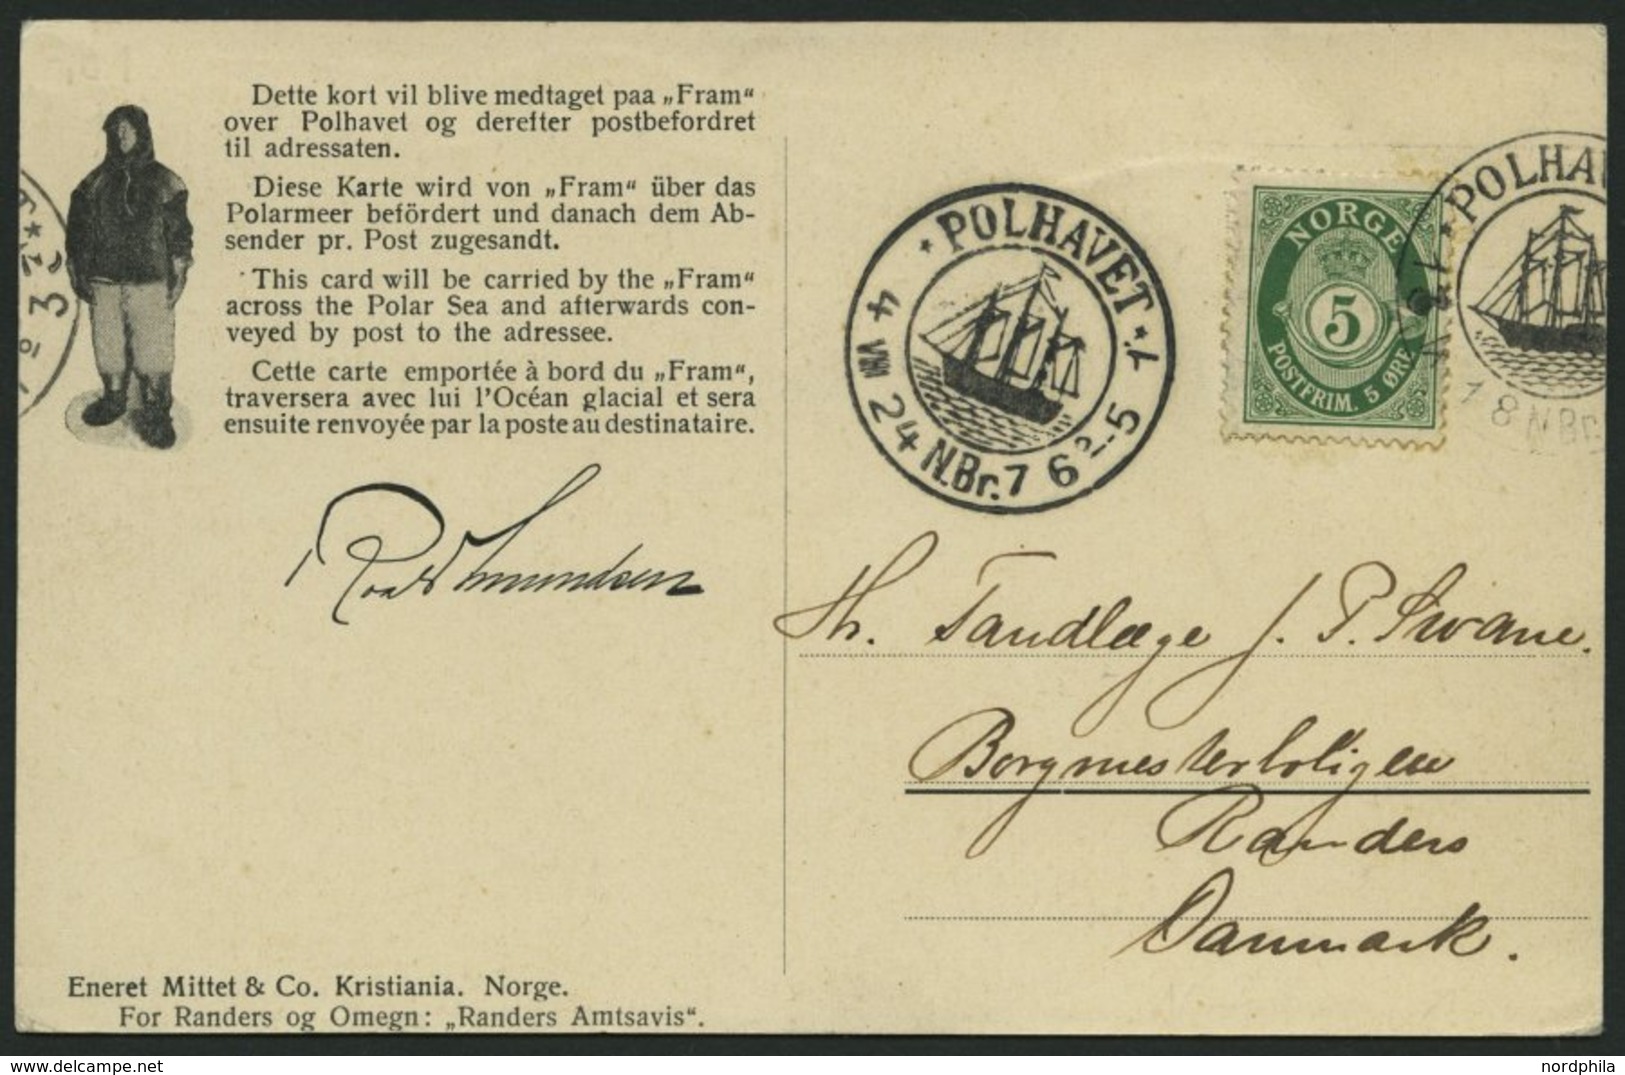 Dette kort vil blive medtaget paa „Fram“
over Polhavet og derefter postbefordret
til adressaten.
Diese Karte wird von „Fram“ über das
Polarmeer befördert und danach dem Ab-
sender pr. Post zugesandt.
This card will be carried by the „Fram“
across the Polar Sea and afterwards con-
veyed by post to the adressee.
Cette carte emportée à bord du „Fram“,
traversera avec lui l'Océan glacial et sera
ensuite renvoyée par la poste au destinataire.
Roald Amundsen
Eneret Mittet & Co. Kristiania. Norge.
For Randers og Omegn: „Randers Amtsavis“.
* POLHAVET *
4 VIII 24 N.Br. 7 6 2-5
NORGE
5
POSTFRIM. 5 ØRE
* POLHAV
18 N.Br.
Hr. Tandlæge J. P. Swane.
Borgmesterboligen
Randers
Danmark.
nordphila.com